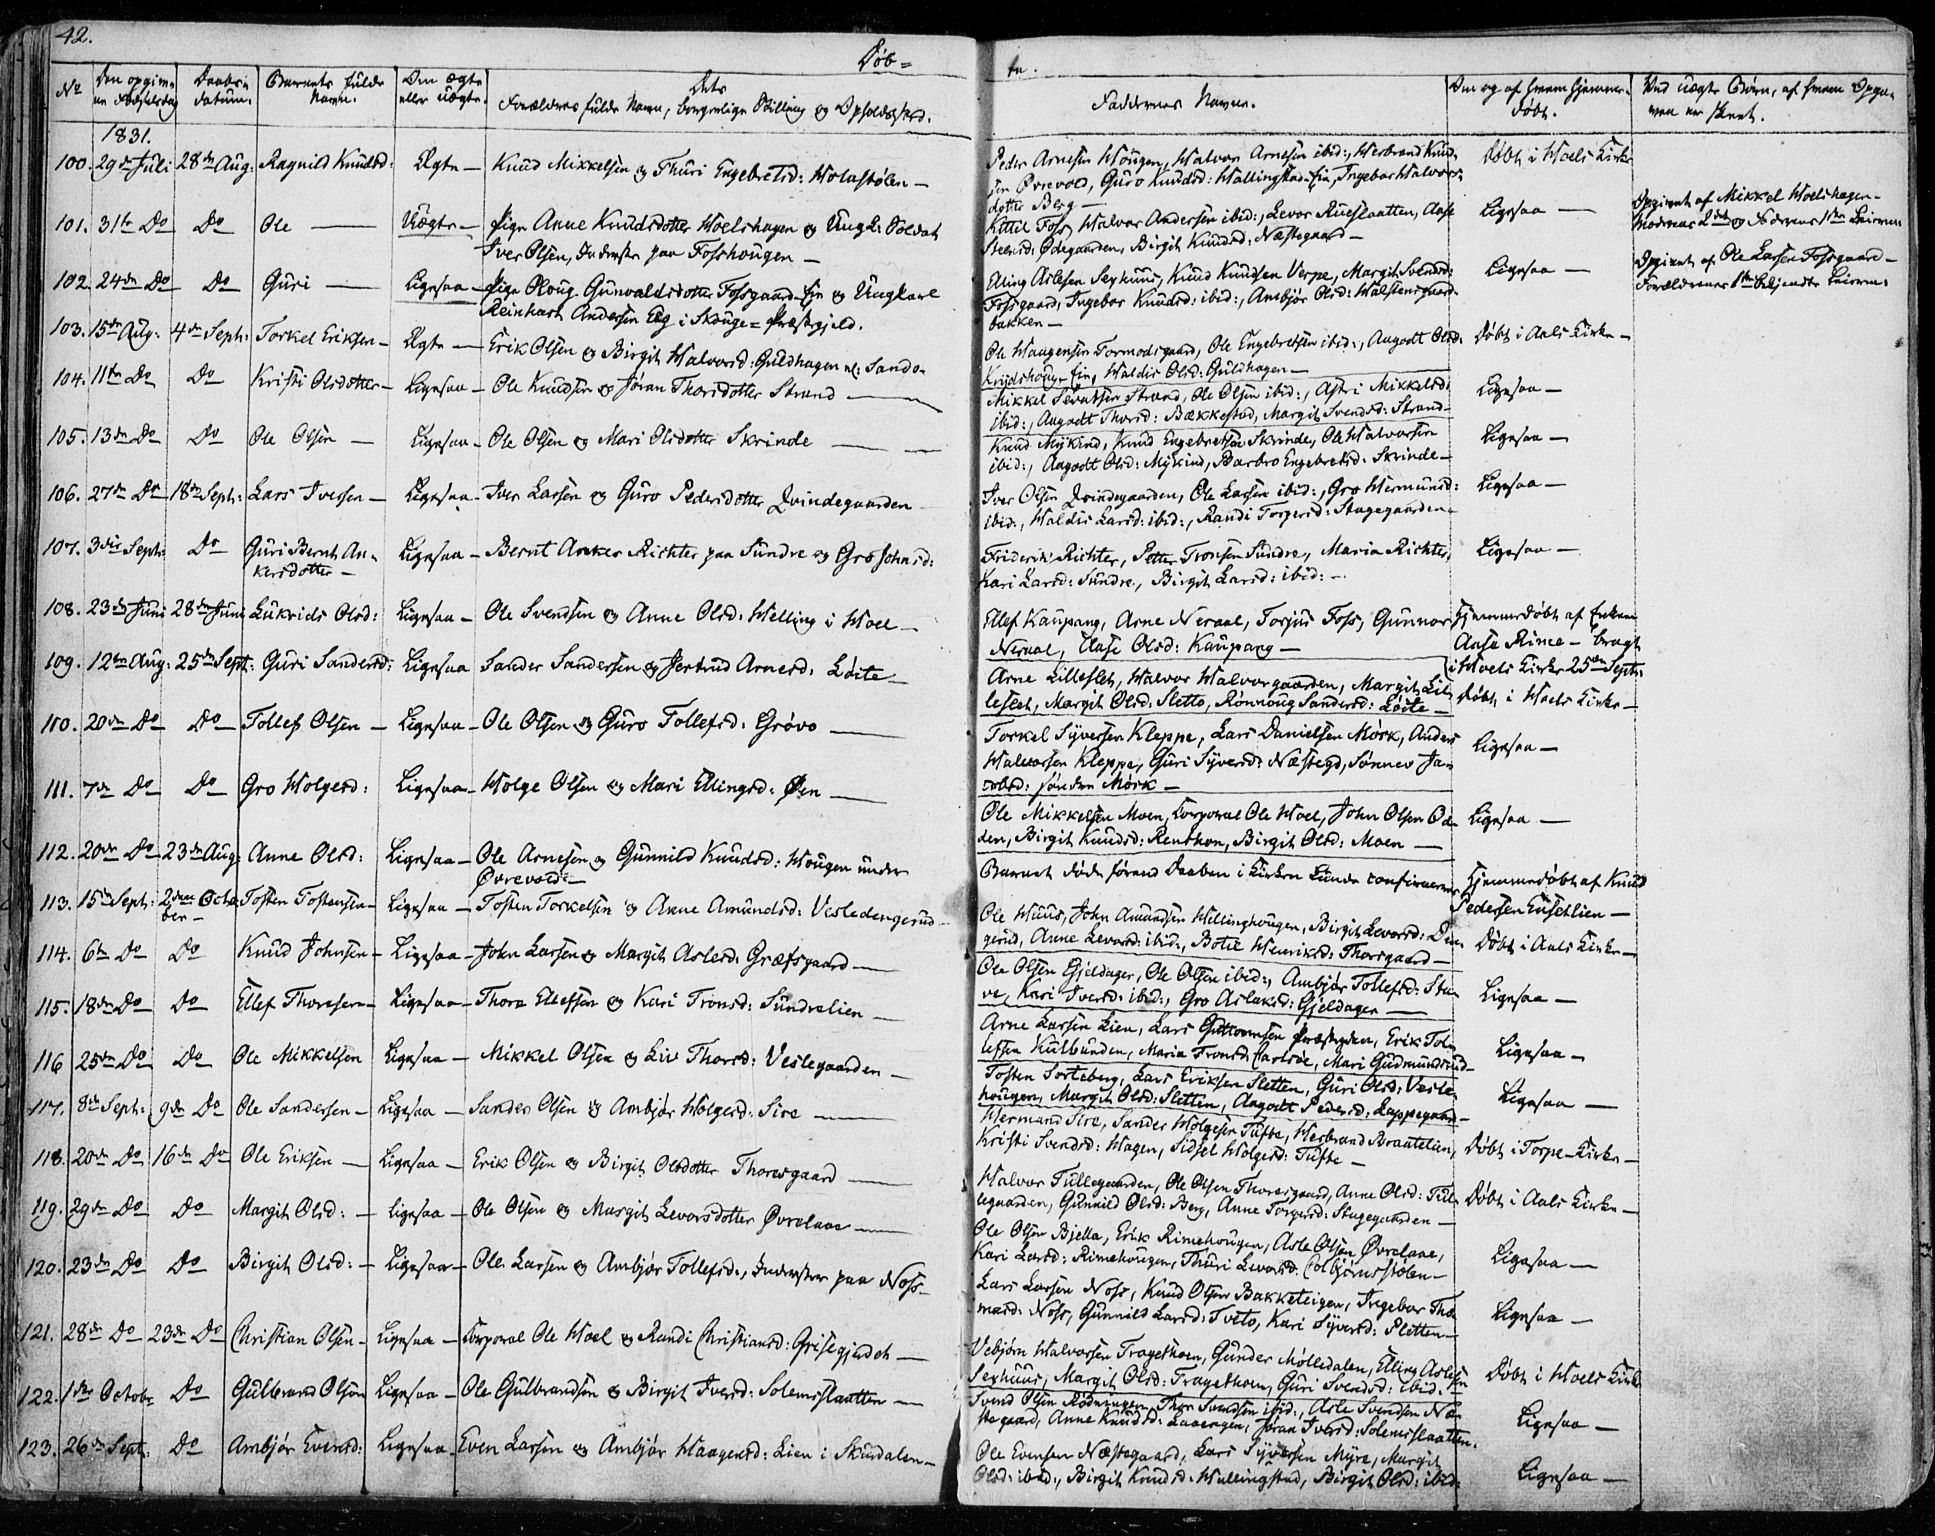 42.
Döb= te.
No
Den opgivne Fødselsdag
Daabs-Datum.
Barnets fulde Navn.
Om ægte eller uægte.
Dets Forældres fulde Navn, borgerlige Stilling og Opholdssted.
Faddernes Navne.
Om og af hvem hjemmedøbt.
Ved uægte Børn, af hvem Opgaven er skeet.
1831.
100. 29de Juli 28de Aug: Ragnild Knudsd: Ægte — Knud Mikkelsen og Thuri Engebretsd: Holastølen —
Peder Arnesen Hougen, Halvor Arnesen ibid:, Herbrand Knud-
sen Øvrevold, Guro Knudsd: Hallingstad-Eie, Ingebor Halvors-
dotter Berg —
Døbt i Hoels Kirke
101. 31te Do Do Ole — Uægte — Pige Anne Knudsdotter Hoelshagen og Ungk: Soldat
Iver Olsen, Inderste paa Fosshougen —
Kittil Foss, Halvor Andersen ibid:, Levor Rueslaatten, Aase
Steensd: Ødegaarden, Birgit Knudsd: Næstegaard —
Ligesaa —
Opgivet af Mikkel Hoelshagen —
Moderens 2det og Faderens 1ste Leierm:
102 24de Do Do Guri — Ligesaa — Pige Oloug Gunvaldsdotter Fossgaard-Eie og Ungkarl
Reinhart Andersen Eeg i Skouge= Præstegjeld.
Elling Aslesen Sexhuus, Knud Knudsen Verpe, Margit Svendsd:
Fossgaard, Ingebor Knudsd: ibid:, Ambjør Olsd: Halstensgaard-
bakken —
Ligesaa —
Opgivet af Ole Larsen Fossgaard —
Forældrenes 1ste beljendte Leierm:
103. 15de Aug: 4de Sept: Torkel Eriksen — Ægte — Erik Olsen og Birgit Halvorsd: Guldhagen v: Sando
Ole Haagensen Tormodsgaard, Ole Engebretsen ibid:, Aagodt Olsd:
Krydshoug-Eie, Haldis Olsd: Guldhagen —
Døbt i Aals Kirke —
104. 11te Do Do Kristi Olsdotter — Ligesaa — Ole Knudsen og Jøran Thorsdotter Strand —
Mikkel Sevatsen Strand, Ole Olsen ibid:, Astri Mikkelsd:
ibid:, Aagodt Thorsd: Bækkestad, Margit Svendsd: Strand —
Ligesaa —
105. 13de Do Do Ole Olsen — Ligesaa — Ole Olsen og Mari Olsdotter Skrinde —
Knud Mykind, Knud Engebretsen Skrinde, Ole Halvorsen
ibid:, Aagodt Olsd: Mykind, Barbro Engebretsd: Skrinde —
Ligesaa —
106. 27de Do 18de Sept: Lars Iversen — Ligesaa — Iver Larsen og Guro Pedersdotter Qvindegaarden
Iver Olsen Qvindegaarden, Ole Larsen ibid:, Gro Hermundsd:
ibid:, Haldis Larsd: ibid:, Randi Torgersd: Stagegaarden —
Ligesaa —
107. 3die Sept: Do Guri Bernt An-
kersdotter — Ligesaa — Bernt Anker Richter paa Sundre og Gro Johnsd:
Friderik Richter, Petter Tronsen Sundre, Maria Richter,
Kari Larsd: Sundre, Birgit Larsd: ibid: —
Ligesaa —
108. 23de Juni 28de Juni Lukrids Olsd: Ligesaa — Ole Svendsen og Anne Olsd: Helling i Hoel —
Ellef Kaupang, Arne Neraal, Torjus Foss, Gunnor
Neraal, Aase Olsd: Kaupang —
Hjemmedøbt af Enken
Aase Rimee — bragt
i Hoels Kirke 25de Sept:
109. 12te Aug: 25de Sept: Guri Sandersd: Ligesaa Sander Sandersen og Jertrud Arnesd: Løite —
Arne Lilleslet, Halvor Halvorgaarden, Margit Lil-
leslet, Margit Olsd: Sletto, Rønnoug Sandersd: Løite —
Døbt i Hoels Kirke —
110. 20de Do Do Tollef Olsen — Ligesaa — Ole Olsen og Guro Tollefsd: Grøvo —
Torkel Syversen Kleppe, Lars Danielsen Mørk, Anders
Halvorsen Kleppe, Guri Syversd: Næstegd, Sønnev Ja-
cobsd: søndre Mørk —
Ligesaa —
111. 7de Do Do Gro Holgersd: Ligesaa — Holge Olsen og Mari Ellingsd: Øen —
Ole Mikkelsen Moen, Corporal Ole Hoel, John Olsen Od-
den, Birgit Knudsd: Renthon, Birgit Olsd: Moen —
Ligesaa —
112. 20de Do 23de Aug: Anne Olsd: Ligesaa — Ole Arnesen og Gunnild Knudsd: Hougen under
Øvrevold —
Barnet døde førend Daaben i Kirken kunde confirmeres
Hjemmedøbt af Knud
Pedersen Tusetlien —
113. 15de Sept: 2den Octo-
ber — Tosten Tostensen — Ligesaa — Tosten Torkelsen og Anne Amundsd: Vesledengerud —
Ole Huus, John Amundsen Hellinghougen, Birgit Levorsd: Den-
gerud, Anne Levorsd: ibid:, Botil Henriksd: Thorsgaard —
Døbt i Aals Kirke —
114. 6te Do Do Knud Johnsen — Ligesaa — John Larsen og Margit Aslesd: Græfsgaard —
Ole Olsen Gjeldager, Ole Olsen ibid:, Ambjør Tollefsd: Stu-
ve, Kari Iversd: ibid:, Gro Aslaksd: Gjeldager —
Ligesaa —
115. 18de Do Do Ellef Thoresen — Ligesaa — Thore Ellefsen og Kari Tronsd: Sundrelien —
Arne Larsen Lien, Lars Guttormsen Præstegden, Erik Tol-
lefsen Kulbunden, Maria Tronsd: Carlsøe, Mari Gudmundsrud —
Ligesaa —
116 25de Do Do Ole Mikkelsen Ligesaa — Mikkel Olsen og Liv Thorsd: Veslegaarden —
Tosten Sorteberg, Lars Eriksen Sletten, Guri Olsd: Vesle-
hougen, Margit Olsd: Sletten, Aagodt Pedersd: Leppegaard —
Ligesaa —
117. 8de Sept: 9de Do Ole Sandersen — Ligesaa — Sander Olsen og Ambjør Holgersd: Sire —
Hermand Sire, Sander Holgesen Tufte, Herbrand Braatelien,
Kristi Svendsd: Hagen, Sidsel Holgersd: Tufte —
Døbt i Torpe-Kirke —
118. 20de Do 16de Do Ole Eriksen — Ligesaa — Erik Olsen og Birgit Olsdotter Thoresgaard —
Halvor Tullegaarden, Ole Olsen Thoresgaard, Anne Olsd: Tul-
legaarden, Gunnild Olsd: Berg, Anne Torgersd: Stagegaarden —
Døbt i Aals Kirke —
119. 29de Do Do Margit Olsd: — Ligesaa — Ole Olsen og Margit Levorsdotter Øvrelaae —
Ole Olsen Bjella, Erik Rimehougen, Asle Olsen Øvrelaae,
Kari Larsd: Rimehougen, Thuri Levorsd: Colbjørnsstølen —
Ligesaa —
120. 23de Do Do Birgit Olsd: — Ligesaa — Ole Larsen og Ambjør Tollefsd:, Inderster paa Noss —
Lars Larsen Noss, Knud Olsen Bakketeigen, Ingebor Tho-
masd: Noss, Gunnild Larsd: Tveto, Kari Syversd: Sletten —
Ligesaa —
121. 28de Do 23de Do Christian Olsen — Ligesaa — Corporal Ole Hoel og Randi Christiansd: Grisegjerdet —
Vebjørn Halvorsen Tragethoen, Gunder Mølledalen, Elling Aslesen
Sexhuus, Margit Olsd: Tragethoen, Guri Svendsd: ibid: —
Døbt i Hoels Kirke
122. 1ste Octobr Do Gulbrand Olsen Ligesaa — Ole Gulbrandsen og Birgit Iversd: Solemsslaatten —
Svend Olsen Rødningen, Thor Svendsen ibid:, Asle Svendsen Næ-
stegaard, Anne Knudsd: Laaengen, Jøran Iversd: Solemsslaatten.
Ligesaa —
123. 26de Sept: Do Ambjør Evensd: Ligesaa — Even Larsen og Ambjør Haagensd: Lien i Skurdalen —
Ole Evensen Næstegaard, Lars Syversen Myre, Margit
Olsd: ibid:, Birgit Knudsd: Hallingstad, Birgit Olsd: ibid:
Ligesaa —